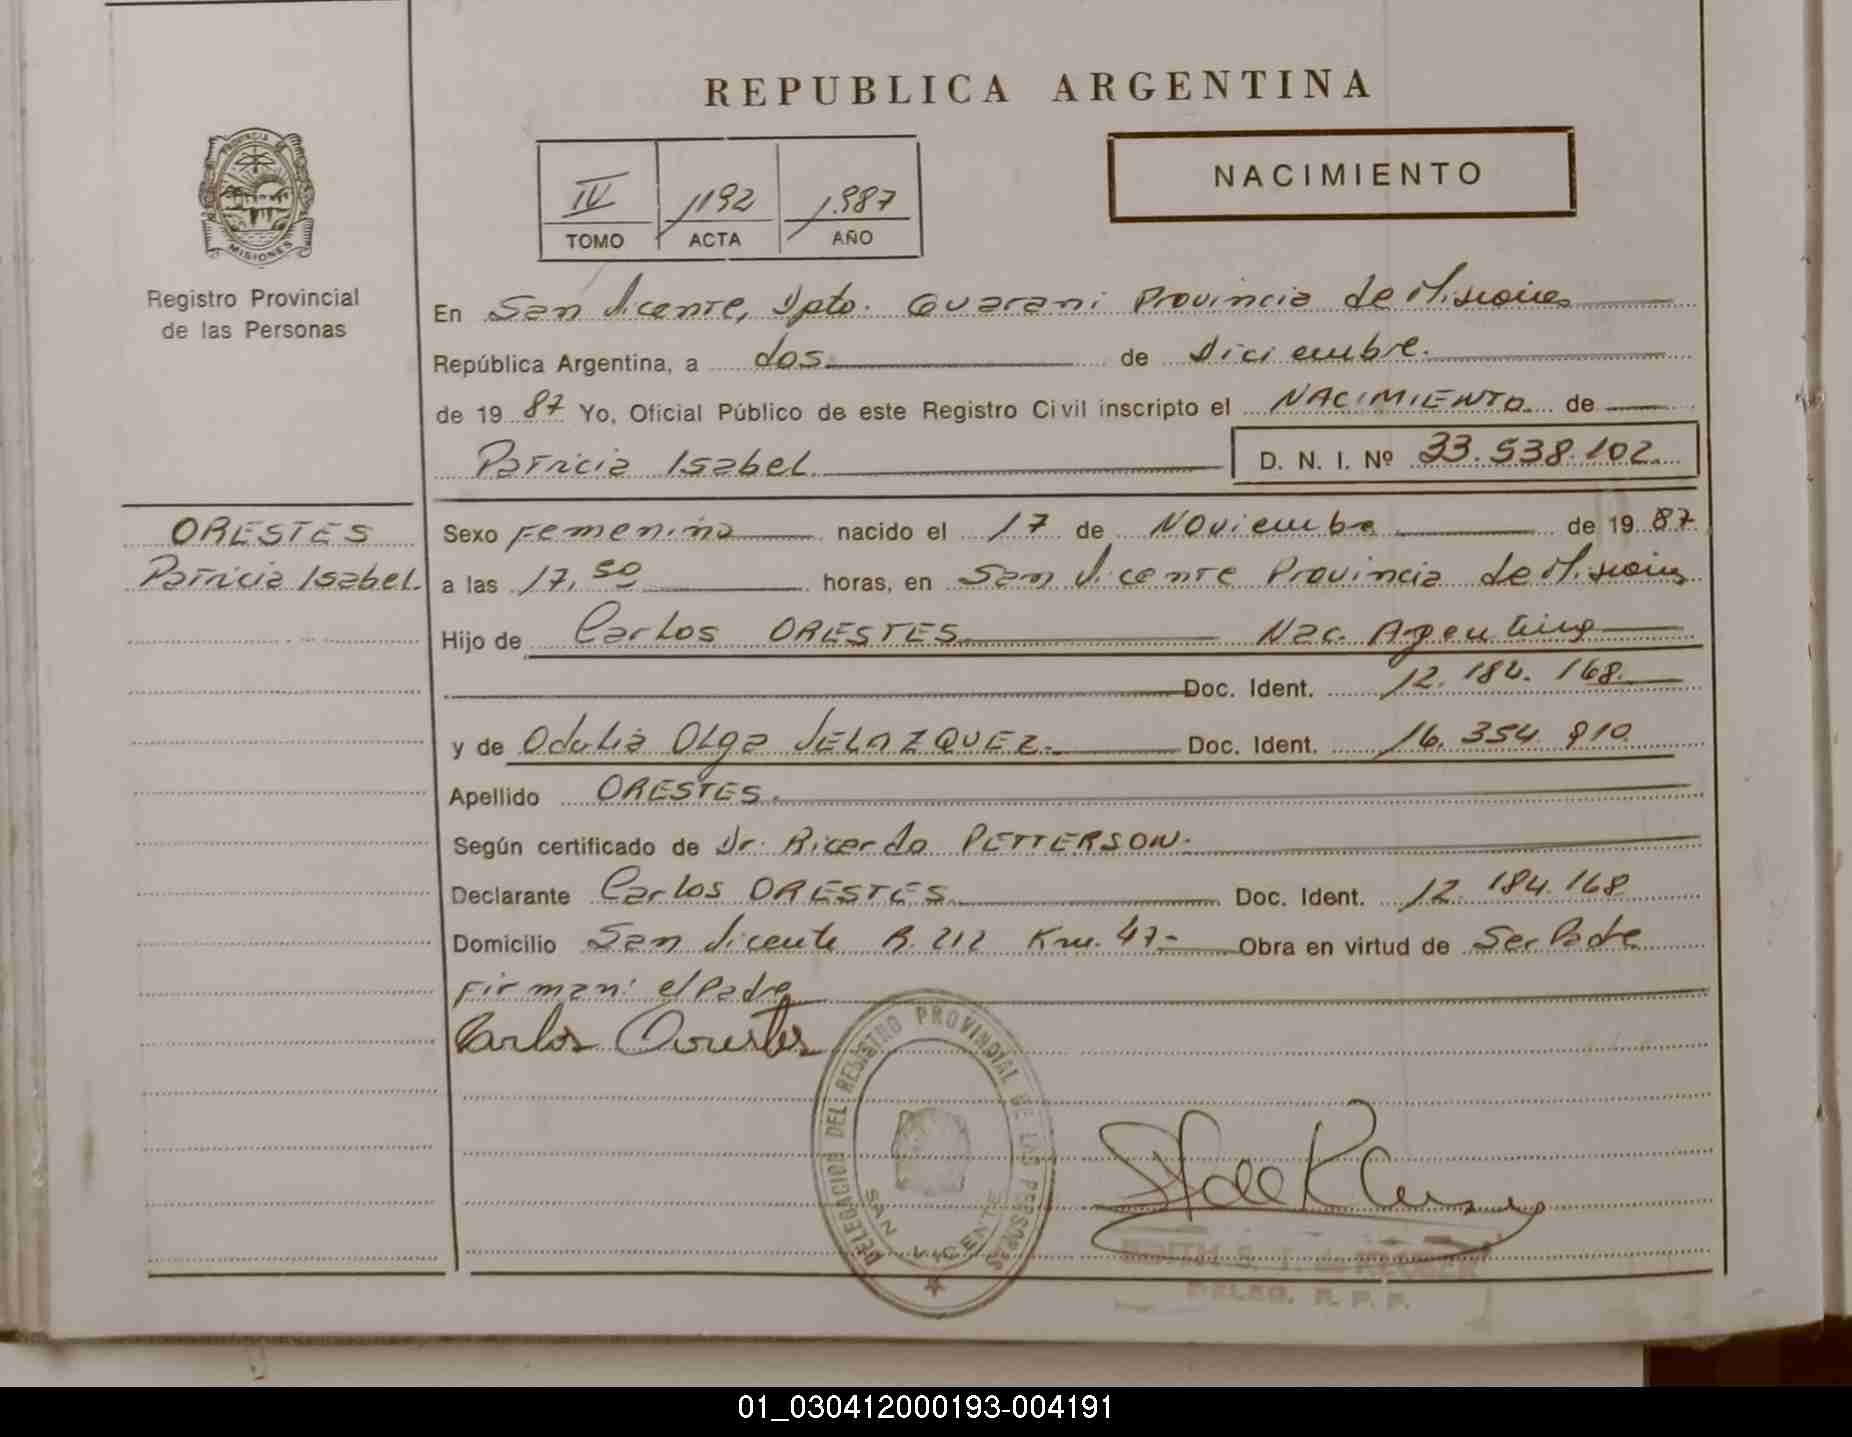 REPUBLICA ARGENTINA
PROVINCIA DE MISIONES
Registro Provincial
de las Personas
IV 1192 1.987
TOMO ACTA AÑO
NACIMIENTO
En San Vicente, Dpto. Guarani Provincia de Misiones
República Argentina, a dos de Diciembre.
de 19 87 Yo, Oficial Público de este Registro Civil inscripto el NACIMIENTO de
Patricia Isabel D. N. I. Nº 33.538.102.
ORESTES
Patricia Isabel.
Sexo Femenino nacido el 17 de Noviembre de 19 87
a las 17,50 horas, en San Vicente Provincia de Misiones
Hijo de Carlos ORESTES Nac. Argentina
Doc. Ident. 12.184.168.
y de Odulia Olga VELAZQUEZ.- Doc. Ident. 16.354.910
Apellido ORESTES.
Según certificado de Dr. Ricardo PETTERSON.
Declarante Carlos ORESTES. Doc. Ident. 12.184.168
Domicilio San Vicente R. 212 Km. 47- Obra en virtud de Ser Padre
Firman: el Padre
Carlos Orestes
DELEGACION DEL REGISTRO PROVINCIAL DE LAS PERSONAS
SAN VICENTE
DELEG. R. P. P.
01_030412000193-004191